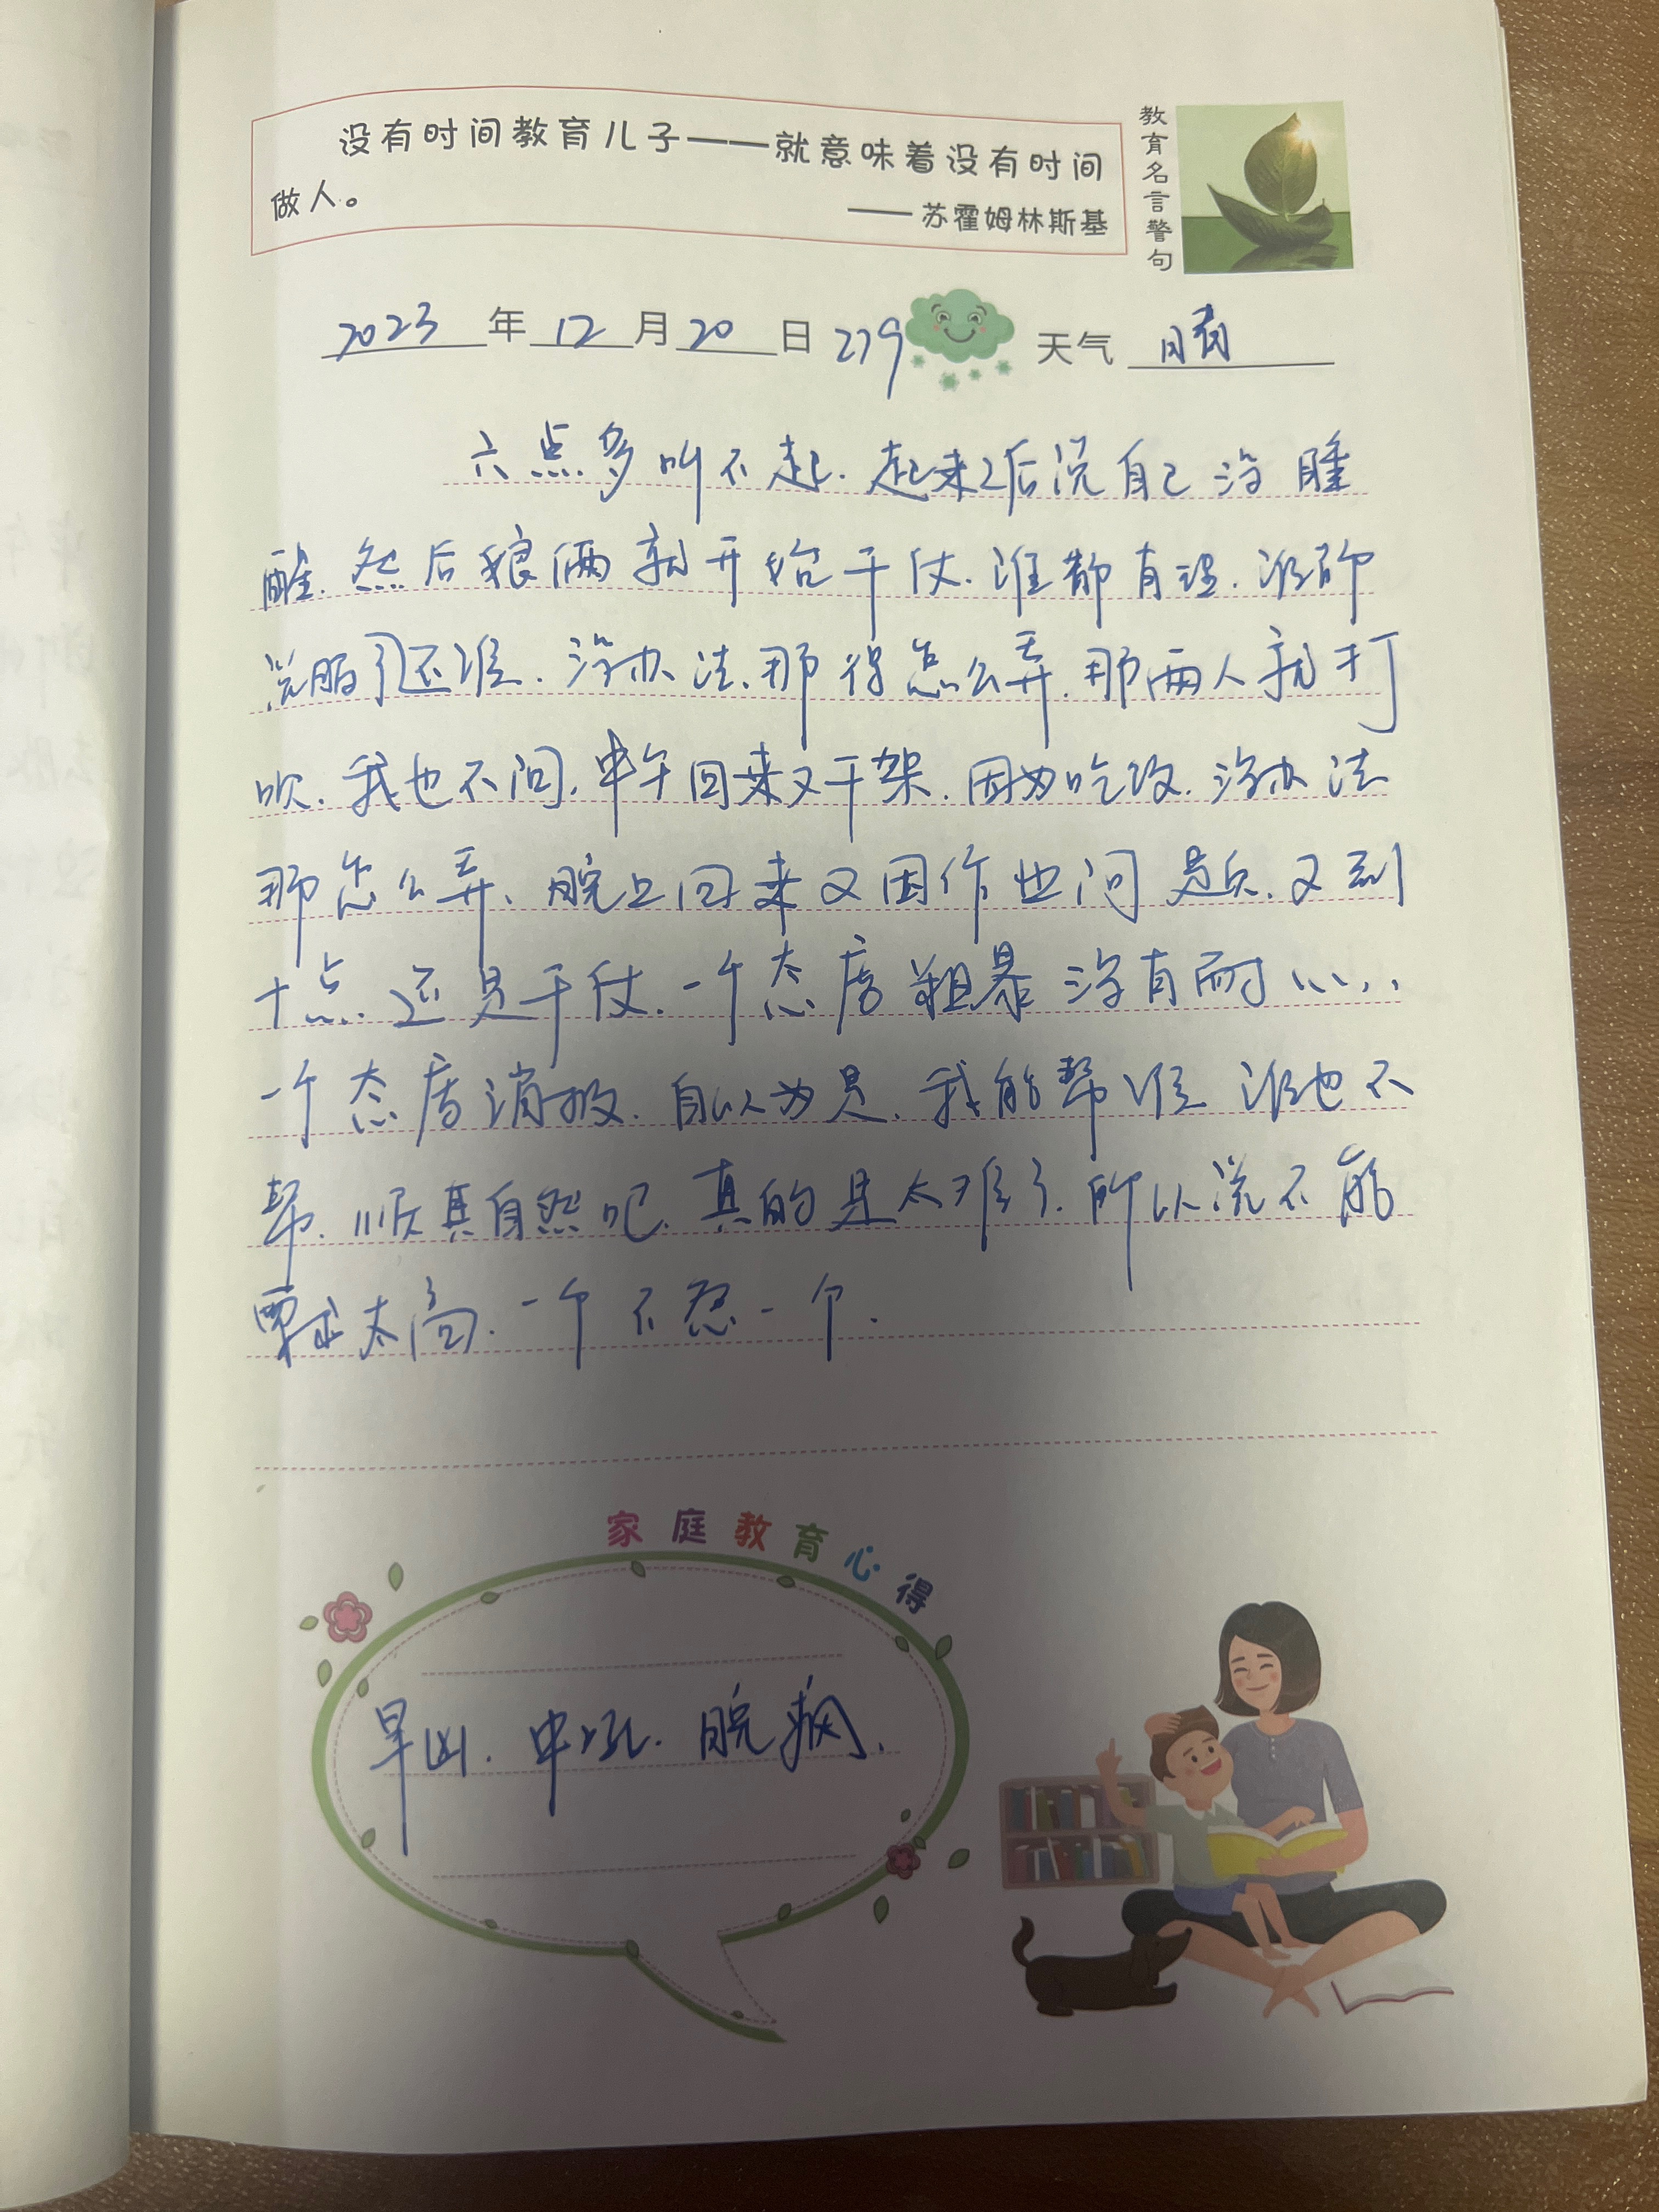 没有时间教育儿子——就意味着没有时间
做人。
——苏霍姆林斯基
教育名言警句
2023年12月20日 279 天气 晴
六点多叫不起.起来之后说自己没睡
醒.然后娘俩就开始干仗.谁都有理.谁能
说服了还谁.没办法.那得怎么弄.那两人就打
吹.我也不问.中午回来又干架.因为吃饭.没办法
那怎么弄、晚上回来又因作业问题.又到
十点.还是干仗.一个态度粗暴没有耐心..
一个态度消极.自以为是.我能帮谁 谁也不
帮.顺其自然吧.真的是太难了.所以说不能
要求太高.一个不忍一个.
家庭教育心得
早凶.中吼.晚疯.